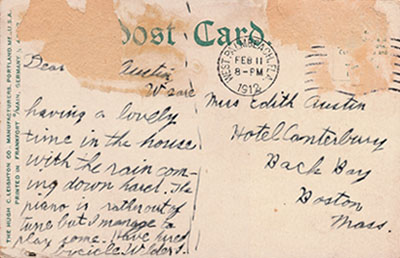 Post Card.
THE HUGH C. LEIGHTON CO., MANUFACTURERS, PORTLAND, ME., U.S.A.
PRINTED IN FRANKFORT MAIN, GERMANY
WEST PALM BEACH, FLA.
FEB 11
8-PM
1912
Dear Austin
We are
having a lovely
time in the house
with the rain com-
ing down hard. The
piano is rather out of
tune but I manage to
play some. Have hired
a bicycle.
Miss Edith Austin
Hotel Canterbury
Back Bay
Boston
Mass.